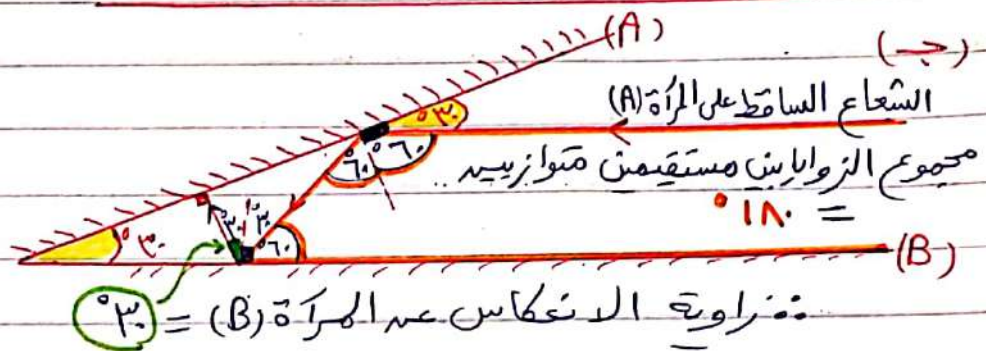 (A)
(جـ)
الشعاع الساقط على المرآة (A)
°٣٠
°٦٠ °٦٠
مجموع الزوايا بين مستقيمين متوازيين
= °١٨٠
°٣٠ °٣٠ °٣٠ °٦٠
(B)
∴ زاوية الانعكاس عن المرآة (B) = °٣٠